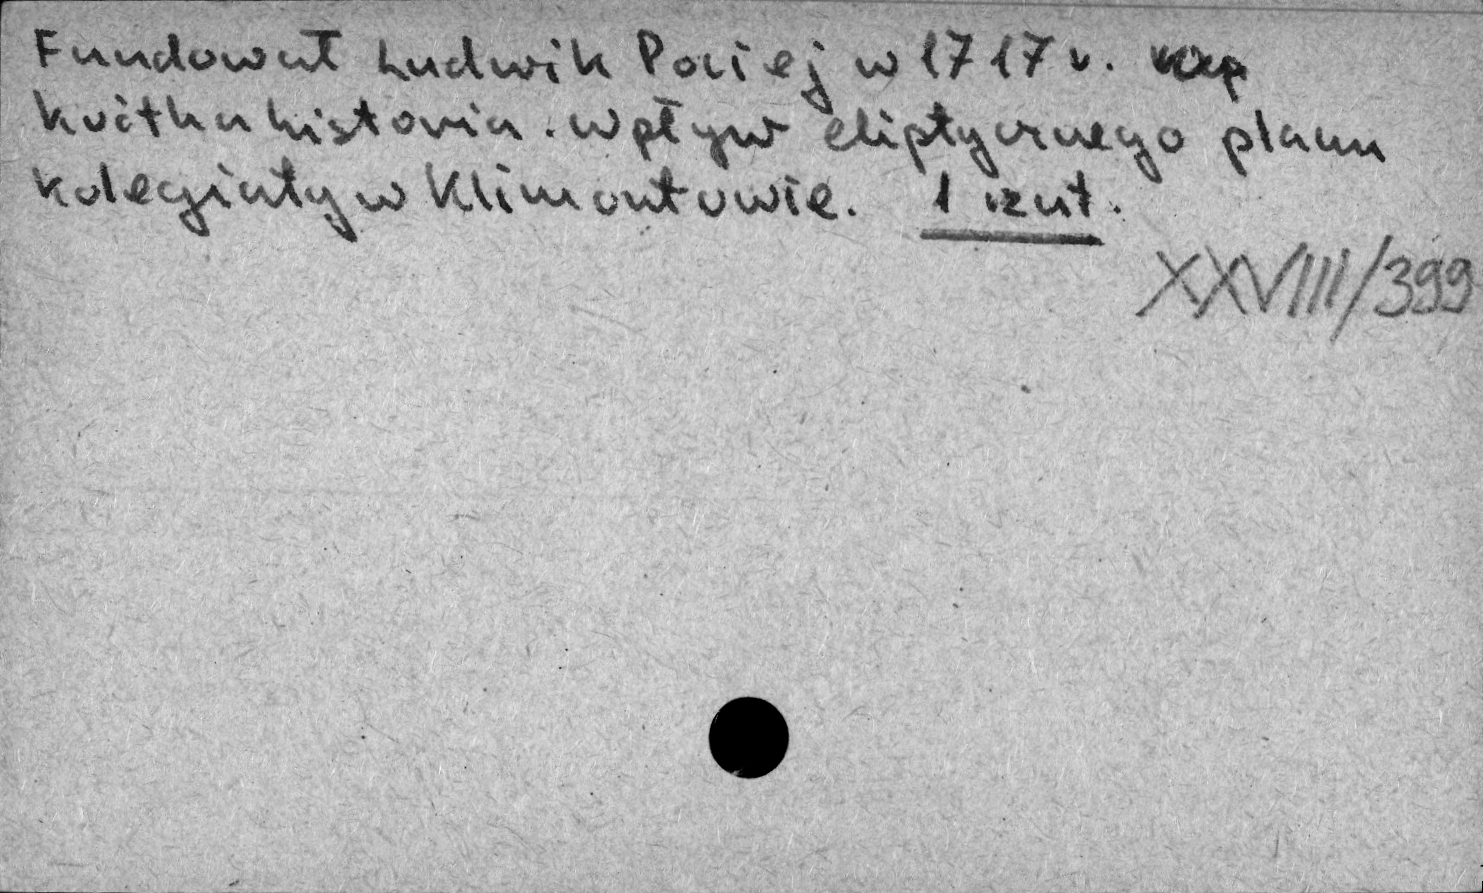 Fundował Ludwik Pociej w 1717 r.
krótka historia. wpływ eliptycznego planu
kolegiaty w Klimontowie. 1 rzut.
XXVIII/399